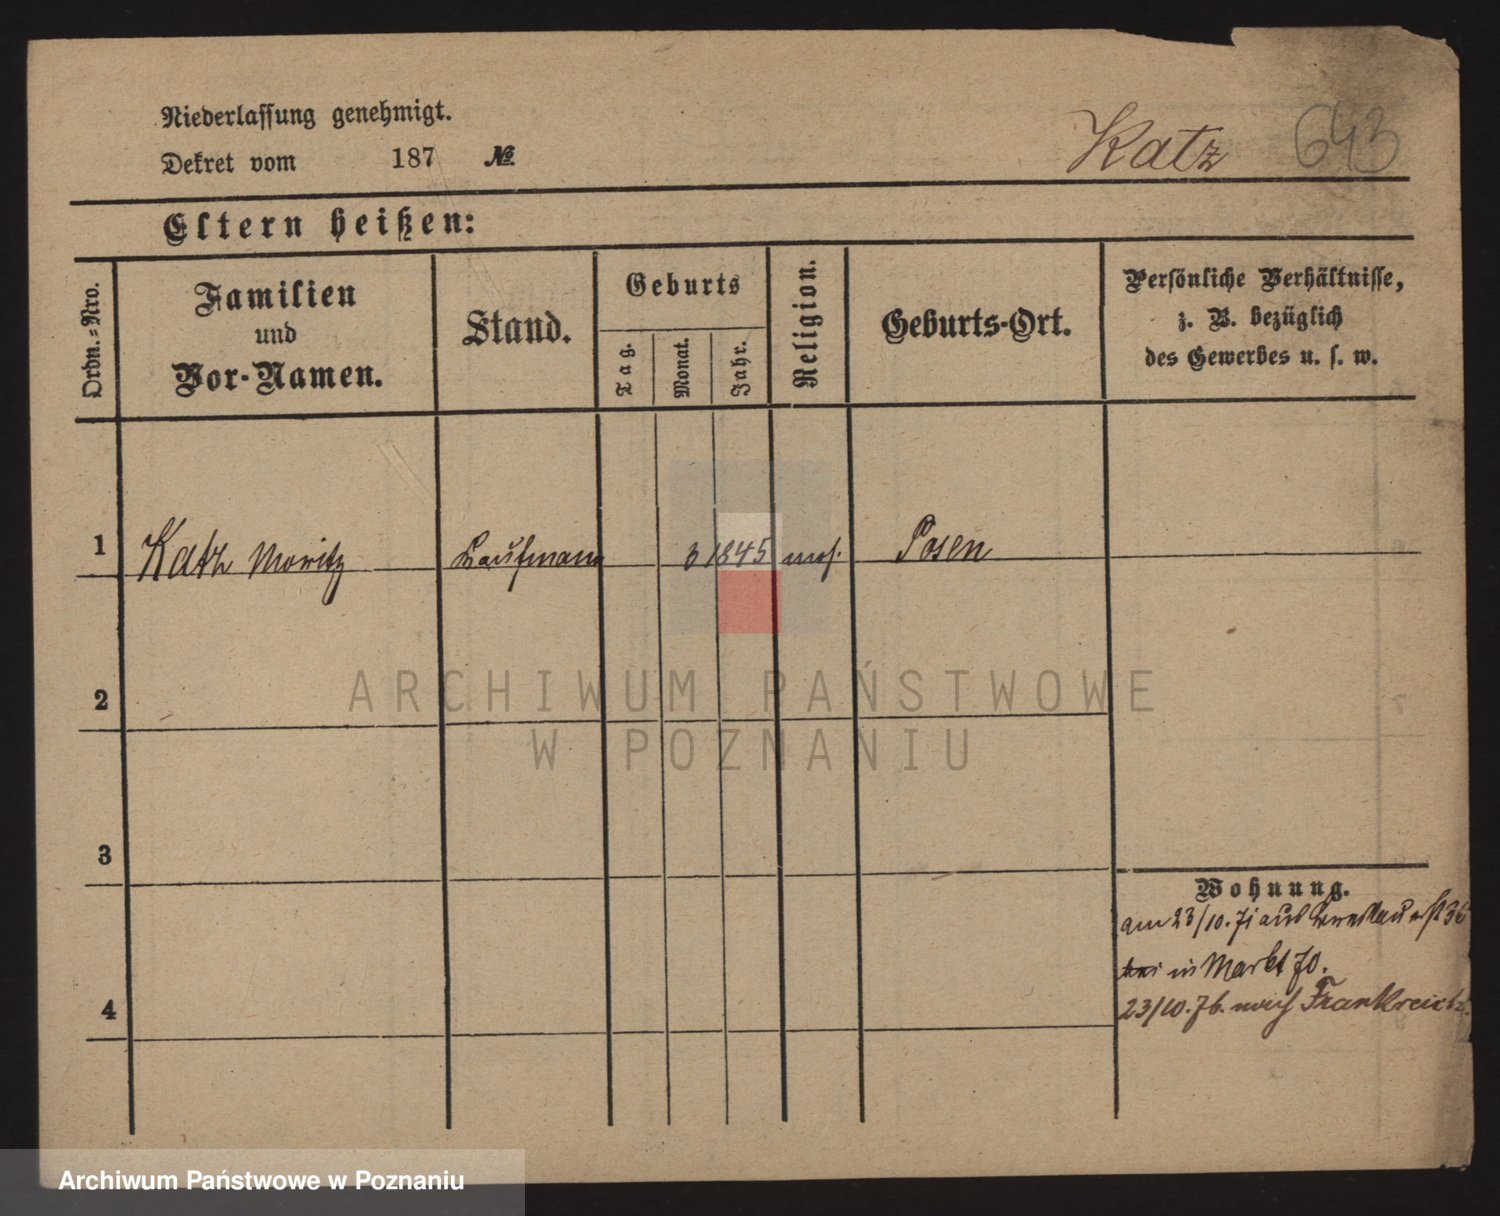 Niederlassung genehmigt.
Dekret vom 187 №
Katz 643
Eltern heißen:
Ordn.-Nro.
Familien
und
Vor-Namen.
Stand.
Geburts
Tag.
Monat.
Jahr.
Religion.
Geburts-Ort.
Persönliche Verhältnisse,
z. B. bezüglich
des Gewerbes u. s. w.
1 Katz Moritz Kaufmann 3 1845 mos. Posen
2
3
4
Wohnung.
am 23/10. 71 aus Breslau
in Markt 70.
23/10. 76. nach Frankreich
ARCHIWUM PAŃSTWOWE
W POZNANIU
Archiwum Państwowe w Poznaniu